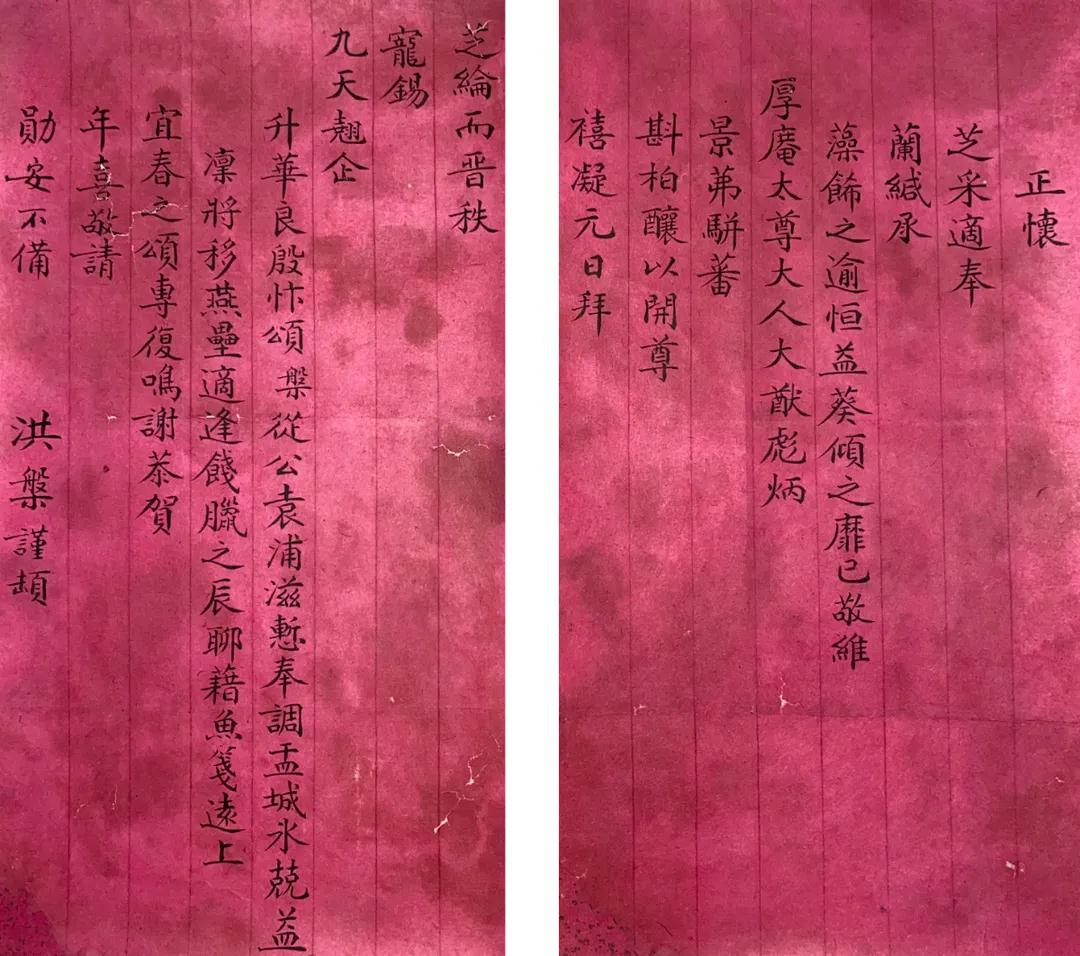 正懷
芝采適奉
蘭緘承
藻飾之逾恒益葵傾之靡已敬維
厚庵太尊大人大猷彪炳
景苐駢蕃
斟柏釀以開尊
禧凝元日拜
芝綸而晋秩
寵錫
九天翹企
升華良殷忭頌槃從公袁浦滋慙奉調盂城氷兢益
凜將移燕壘適逢餞臘之辰聊藉魚箋遠上
宜春之頌專復鳴謝恭賀
年喜敬請
勛安不備
洪槃謹頓